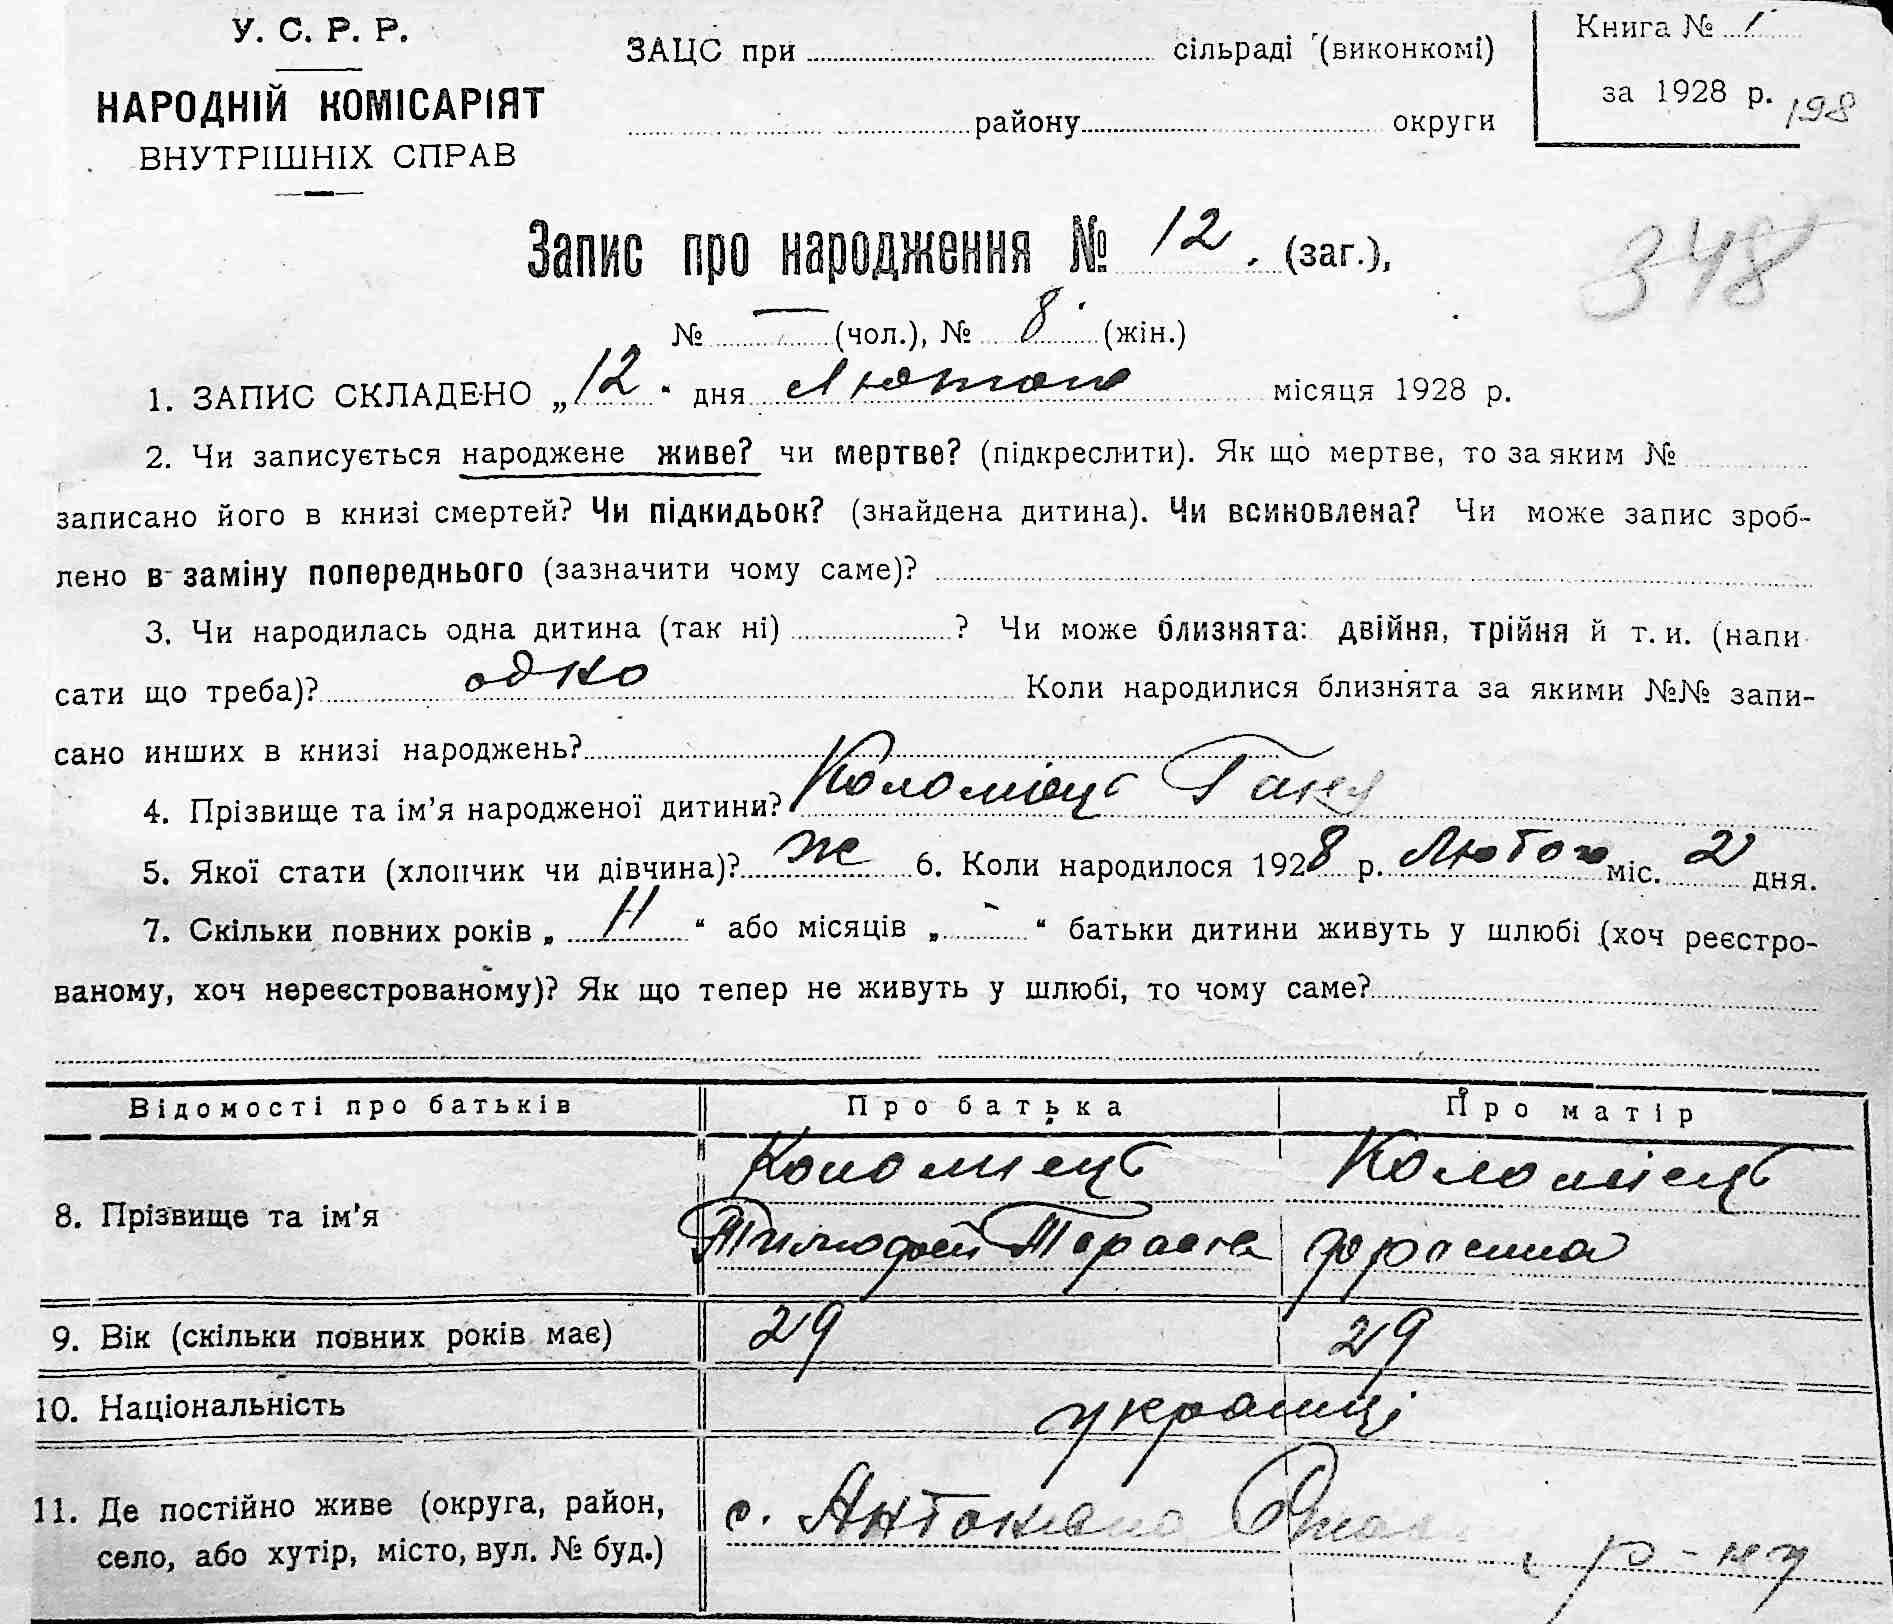 У. С. Р. Р.
НАРОДНІЙ КОМІСАРІЯТ
ВНУТРІШНІХ СПРАВ
ЗАЦС при сільраді (виконкомі)
району округи
Книга № 1
за 1928 р.
198
348
Запис про народження № 12. (заг.),
№ — (чол.), № 8 (жін.)
1. ЗАПИС СКЛАДЕНО „12" дня Лютого місяця 1928 р.
2. Чи записується народжене живе? чи мертве? (підкреслити). Як що мертве, то за яким №
записано його в книзі смертей? Чи підкидьок? (знайдена дитина). Чи всиновлена? Чи може запис зроб-
лено в заміну попереднього (зазначити чому саме)?
3. Чи народилась одна дитина (так ні) ? Чи може близнята: двійня, трійня й т. и. (напи-
сати що треба)? одно Коли народилися близнята за якими №№ запи-
сано инших в книзі народжень?
4. Прізвище та ім'я народженої дитини? Коломієць Ганя
5. Якої стати (хлопчик чи дівчина)? ж 6. Коли народилося 1928 р. Лютого міс. 2 дня.
7. Скільки повних років „ 11 " або місяців „ - " батьки дитини живуть у шлюбі (хоч реєстро-
ваному, хоч нереєстрованому)? Як що тепер не живуть у шлюбі, то чому саме?
Відомості про батьків Про батька Про матір
8. Прізвище та ім'я Коломієць Коломієць
Тимофей Тарасов
9. Вік (скільки повних років має) 29 29
10. Національність українці
11. Де постійно живе (округа, район, с. Антонівка
село, або хутір, місто, вул. № буд.) р-ну